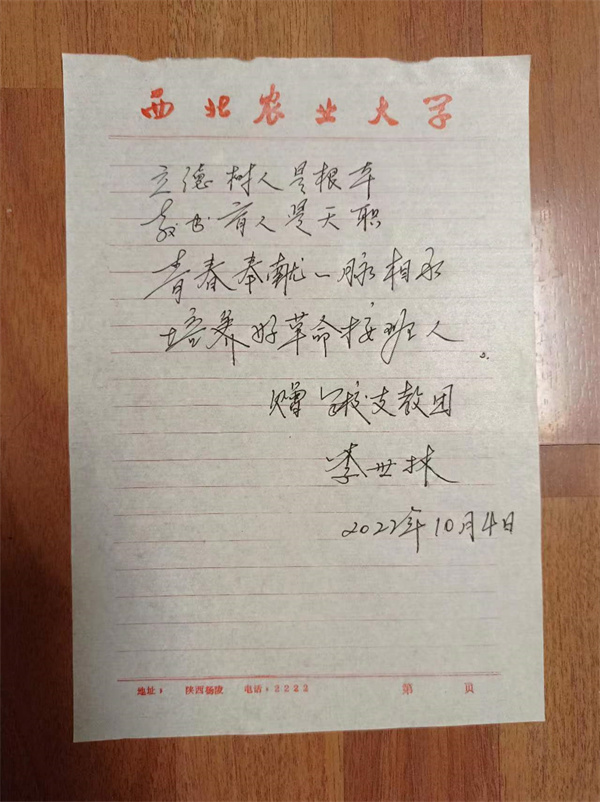 西北农业大学
立德树人是根本
教书育人是天职
青春奉献一脉相承
培养好革命接班人。
赠 我校支教团
李世林
2022年10月4日
地址： 陕西杨陵 电话：2222 第 页